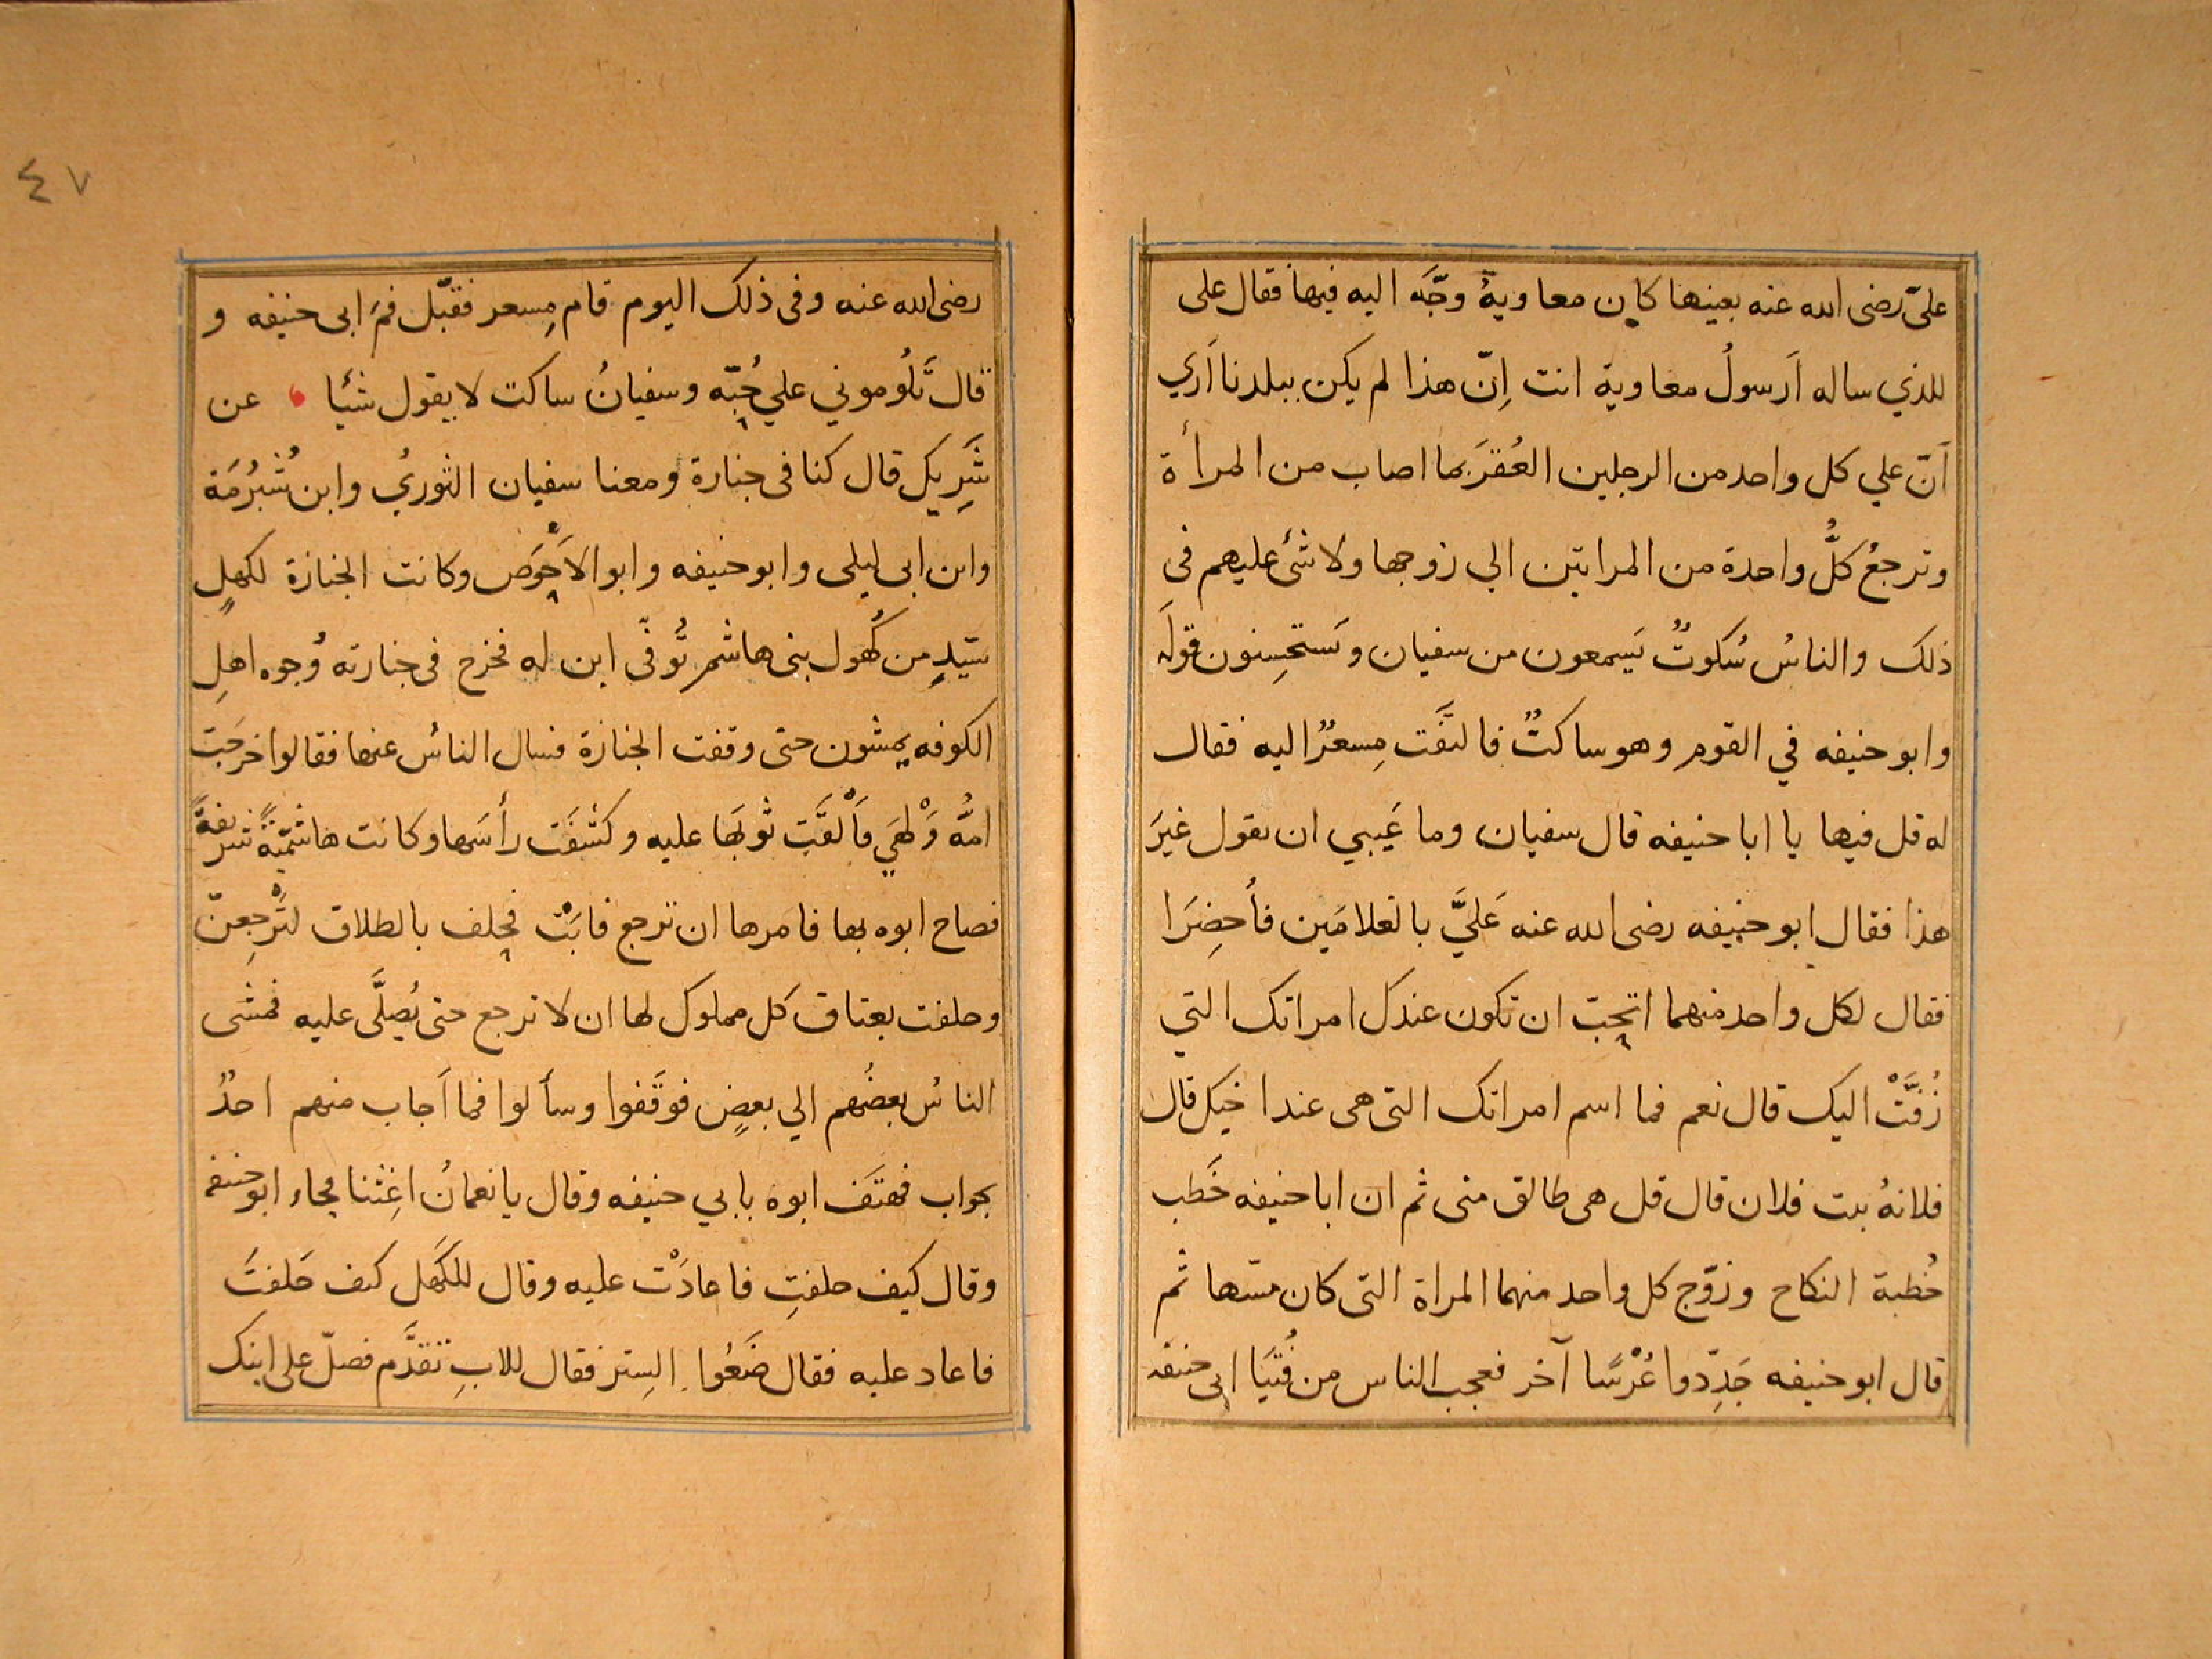 عليّ رضى الله عنه بعينها كان معاوية وجَّه اليه فيها فقال على
للذي ساله اَرسولُ معاوية انت اِنّ هذا لم يكن ببلدنا اَري
اَنّ علي كل واحد من الرجلين العُقرَ بما اصاب من المرأة
وترجعُ كلُّ واحدة من المراتين الي زوجها ولا شئ عليهم فى
ذلك والناسُ سُكوتٌ يَسمعون من سفيان ويَستحسِنون قولَه
وابو حنيفه في القوم وهو ساكتٌ فالتفَت مِسعرٌ اليه فقال
له قل فيها يا ابا حنيفه قال سفيان وما عَيبي ان يقول غيرَ
هذا فقال ابو حنيفه رضى الله عنه عَليَّ بالغلامَين فأُحضِرَا
فقال لكل واحد منهما اتحِبّ ان تكون عندك امراتك التي
زُفَّتْ اليك قال نعم فما اسم امراتك التى هى عند اخيك قال
فلانهُ بنت فلان قال قل هى طالق منى ثم ان ابا حنيفه خَطب
خُطبة النكاح وزوّج كل واحد منهما المراة التى كان مسّها ثم
قال ابو حنيفه جَدِّدوا عُرْسًا آخر فعجب الناس من فُتيَا ابى حنيفه
٤٧
رضى الله عنه وفى ذلك اليوم قام مِسعر فقبّل فمَ ابى حنيفه و
قال تَلُوموني علي حُبّه وسفيانُ ساكت لا يقول شئيا عن
شَرِيك قال كنا فى جنازة ومعنا سفيان الثوريُ وابن شُبْرُمَة
وابن ابى ليلى وابو حنيفه وابو الاَحْوَص وكانت الجنازة لكهلٍ
سيّدٍ من كُهُول بنى هاشم تُوفّى ابن له فخرج فى جنازته وُجوه اهلِ
الكوفه يمشون حتى وقفت الجنازة فسال الناسُ عنها فقالوا خرجَت
امُّه وَلْهَي فَاَلْقَت ثوبَها عليه وكشفَت رأسَها وكانت هاشميّةً شريفةً
فصاح ابوه بها فامرها ان ترجع فابَتْ فحلف بالطلاق لتَرْجِعنّ
وحلفت بعتاق كل مملوك لها ان لا ترجع حتى يُصلَّى عليه فمشى
الناسُ بعضُهم الي بعضٍ فوقَفوا وسألوا فما اَجاب منهم احدٌ
بجواب فهتَف ابوه بابي حنيفه وقال يا نعمانُ اغِثنا فجاء ابو حنيفه
وقال كيف حلفتِ فاعادَتْ عليه وقال للكَهل كيف حَلفتَ
فاعاد عليه فقال ضَعُوا السِتر فقال للابِ تقدَّم فصلّ على ابنك